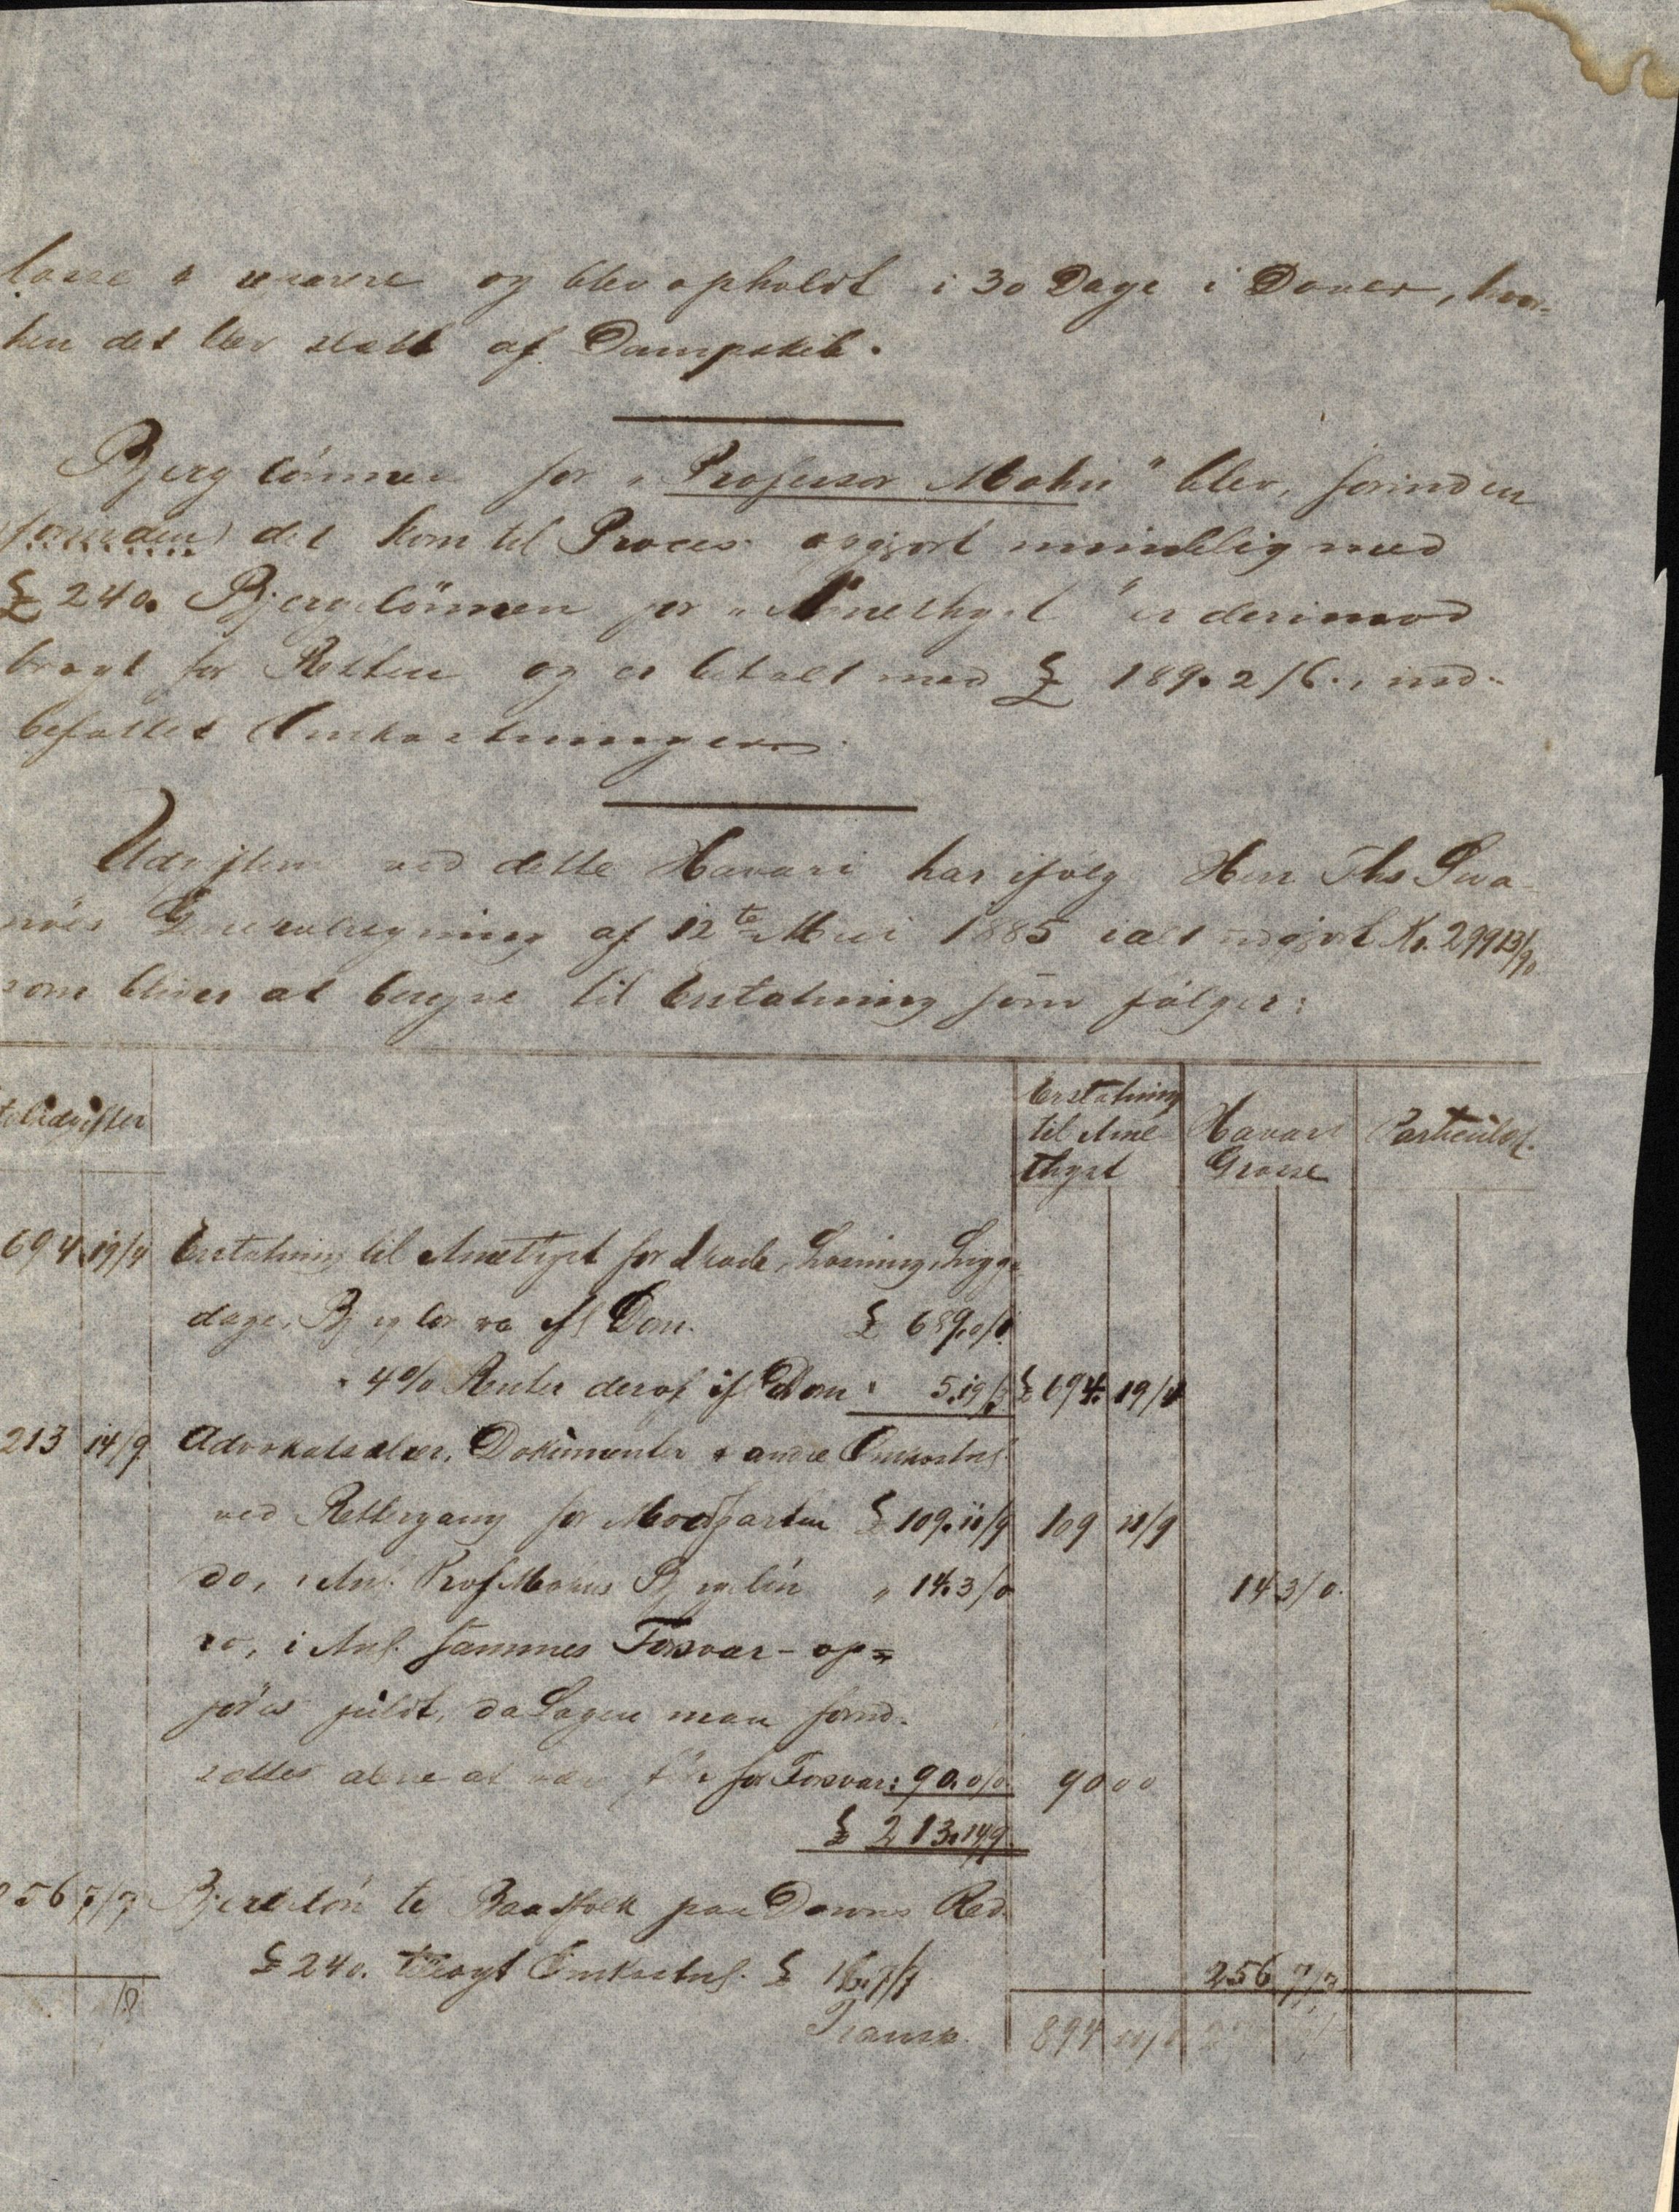 losse & reparere og blev opholdt i 30 Dage i Dover, hvor-
hen det blev slæbt af Dampskib.
Bjerglönnen for "Professor Mohn" blev, forinden
(forinden) det kom til Proces opgjort mindelig med
£ 240. Bjergelönnen for "Amethyst" er derimod
bragt for Retten og er betalt med £ 189.2/6., ind-
befattet Omkostninger.
Udgiften ved dette Havari har ifølg Herr Ths Swa-
nöes Generalregning af 12te Mai 1885 ialt udgjort Kr. 29913/90
som bliver at beregne til Erstatning som følger:
Udgifter
Erstatning
til Ame-
thyst
Havari
Grosse
Particulær.
694 19/4 Erstatning til Ametyst for Skade, Losning, Ligge-
dage, Bjerglön efl Dom. £ 689.0/0
" 4% Renter deraf ifl Dom " 5.19/4 £ 694. 19/4
213 14/9 Advokatsalær, Dokumenter & andre Omkostnr.
ved Rettergang for Modparten £ 109.11/9 109 11/9
do, i Anl. Prof Mohns Bjergelön " 14.3/0 14 3/0.
do, i Anl. sammes Forsvar - op-
föres fuldt, da Sagen maa forud-
sættes alene at være ført for Forsvar: 90.0/0. 90 0 0
£ 213.14/9.
256 7/7 Bjergelön til Baadfolk paa Downs Red
£ 240. tillagt Omkostnr. £ 16.7/7 256 7/7
Transp. 894